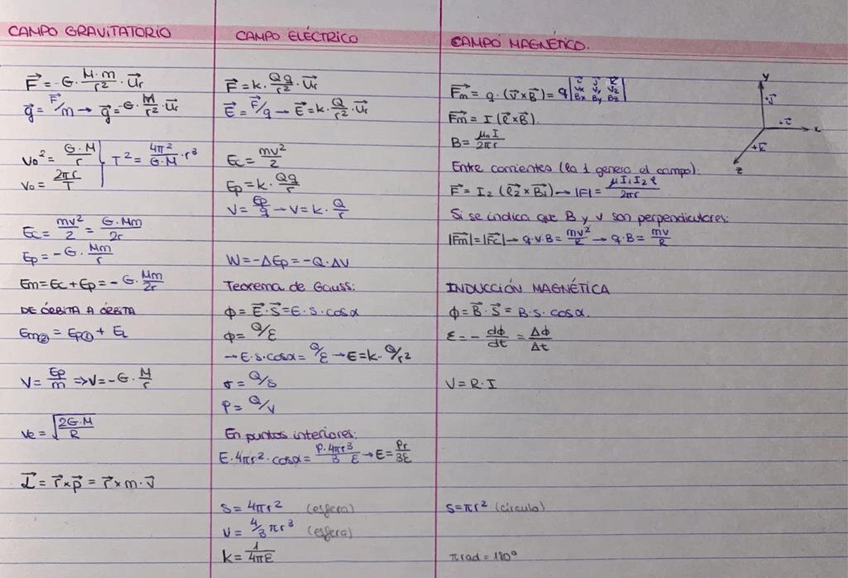 CAMPO GRAVITATORIO
F⃗ = -G · M·m/r² · u⃗r
g⃗ = F⃗/m → g⃗ = -G · M/r² · u⃗r
v₀² = G·M/r } T² = 4π²/G·M · r³
v₀ = 2πr/T
Ec = mv²/2 = G·Mm/2r
Ep = -G · Mm/r
Em = Ec + Ep = -G · Mm/2r
DE ÓRBITA A ÓRBITA
Em② = Ep① + Ec
V = Ep/m ⇒ V = -G · M/r
ve = √(2G·M/R)
L⃗ = r⃗ × p⃗ = r⃗ × m · v⃗
CAMPO ELÉCTRICO
F⃗ = k · Qq/r² · u⃗r
E⃗ = F⃗/q → E⃗ = k · Q/r² · u⃗r
Ec = mv²/2
Ep = k · Qq/r
V = Ep/q → V = k · Q/r
W = -ΔEp = -Q · ΔV
Teorema de Gauss:
ϕ = E⃗ · S⃗ = E · S · cosα
ϕ = Q/ε
→ E·S·cosα = Q/ε → E = k · Q/r²
σ = Q/S
ρ = Q/V
En puntos interiores:
E · 4πr² · cosα = ρ·4πr³/3 ε → E = ρr/3ε
S = 4πr² (esfera)
V = 4/3 πr³ (esfera)
k = 1/4πε
CAMPO MAGNÉTICO.
F⃗m = q · (v⃗ × B⃗) = q | i⃗ j⃗ k⃗ vx vy vz Bx By Bz |
F⃗m = I (ℓ⃗ × B⃗)
B = μ₀I/2πr
Entre corrientes (la 1 genera el campo).
F⃗ = I₂ (ℓ⃗₂ × B⃗₁) → |F| = μI₁I₂ℓ/2πr
Si se indica que B y v son perpendiculares:
|F⃗m| = |F⃗c| → q·v·B = mv²/R → q·B = mv/R
INDUCCIÓN MAGNÉTICA
ϕ = B⃗ · S⃗ = B · S · cosα.
ε = - dϕ/dt = Δϕ/Δt
V = R · I
S = πr² (círculo)
π rad = 180°
y
+j⃗
+i⃗
x
+k⃗
z